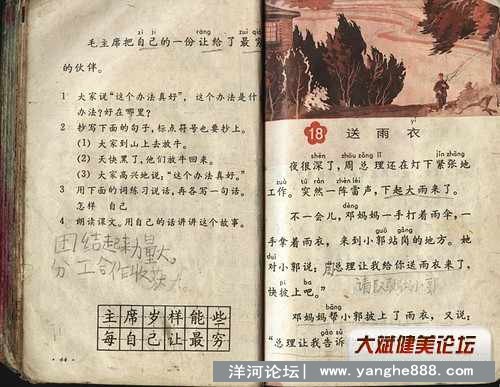 zì jǐ ràng zuì qióng
毛主席把自己的一份让给了最穷
的伙伴。
1 大家说“这个办法真好”,这个办法是什
办法?好在哪里?
2 抄写下面的句子,标点符号也要抄上。
(1) 大家到山上去放牛。
(2) 天快黑了,他们放牛回来。
(3) 大家高兴地说:“这个办法真好。”
3 用下面的词练习说话,再各写一句话。
怎样 自己
4 朗读课文。用自己的话讲讲这个故事。
团结起来力量大。
分工合作收获大。
主席岁样能些
每自己让最穷
·44·
yī
18 送雨衣
shēn zhōu zǒng lǐ jǐn zhāng
夜很深了,周总理还在灯下紧张地
zuò tū rán zhèn léi
工作。突然一阵雷声,下起大雨来了。
不一会儿,邓妈妈一手打着雨伞,一
guō gǎng
手拿着雨衣,来到小郭站岗的地方。她
duì
对小郭说:“总理让我给你送雨衣来了,
快披上吧。”
邓妈妈帮小郭披上了雨衣,又说:
gào sù
“总理让我告诉
大斌健美论坛
www.yanghe888.com
洋河论坛:www.yanghe888.com